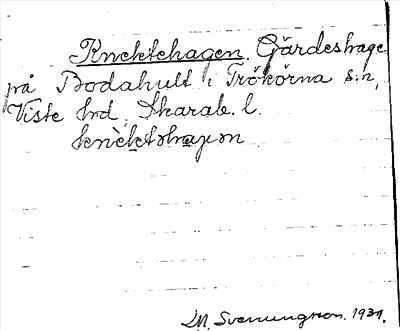 Knektehagen. Gärdeshage
på Bodahult i Trökörna s:n,
Viste hd, Skarab. l.
SM. Svenungsson. 1931.